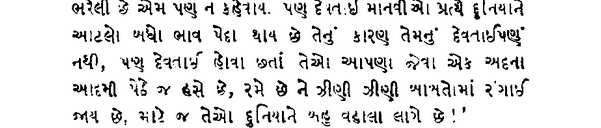 ભરેલી છે એમ પણ ન કહેવાય. પણ દેવતાઈ માનવીઓ પ્રત્યે દુનિયાને
આટલો બધો ભાવ પેદા થાય છે તેનું કારણ તેમનું દેવતાઈપણું
નથી, પણ દેવતાઈ હોવા છતાં તેઓ આપણા જેવા એક અદના
આદમી પેઠે જ હસે છે, રમે છે ને ઝીણી ઝીણી બાબતોમાં રંગાઈ
જાય છે, માટે જ તેઓ દુનિયાને બહુ વહાલા લાગે છે!'